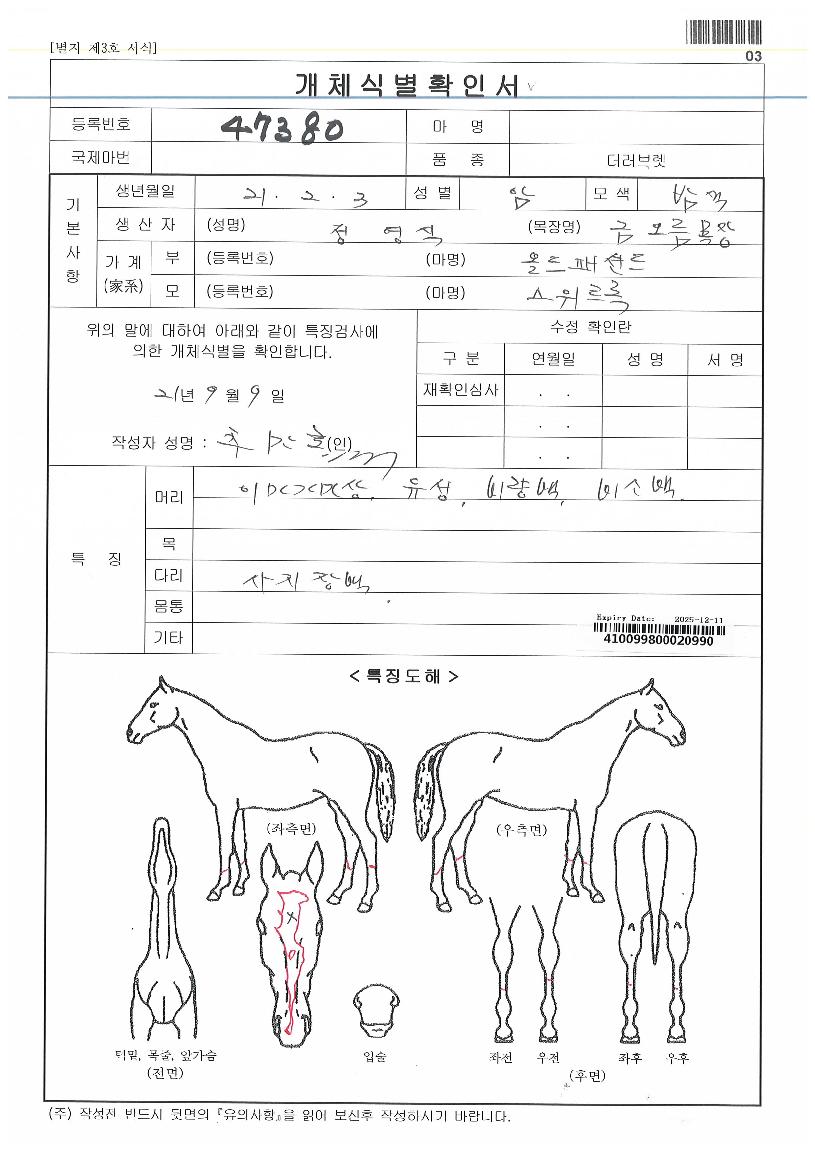 [별지 제3호 서식]
03
개체식별확인서
등록번호 47380 마 명
국제마번 품 종 더러브렛
기본사항
생년월일 21. 2. 3 성 별 암 모 색 밤색
생 산 자 (성명) 정영식 (목장명) 금오름목장
가 계 (家系) 부 (등록번호) (마명) 올드패션드
모 (등록번호) (마명) 스위르륵
위의 말에 대하여 아래와 같이 특징검사에
의한 개체식별을 확인합니다.
21년 9월 9일
작성자 성명 : (인)
수정 확인란
구 분 연월일 성 명 서 명
재확인심사 . .
. .
. .
특 징
머리 유성, 비량백, 비소백
목
다리 사지장백
몸통
기타
Expiry Date: 2025-12-11
410099800020990
< 특징도해 >
(좌측면) (우측면)
턱밑, 목줄, 앞가슴 입술 좌전 우전 좌후 우후
(전면) (후면)
(주) 작성전 반드시 뒷면의 『유의사항』을 읽어 보신후 작성하시기 바랍니다.